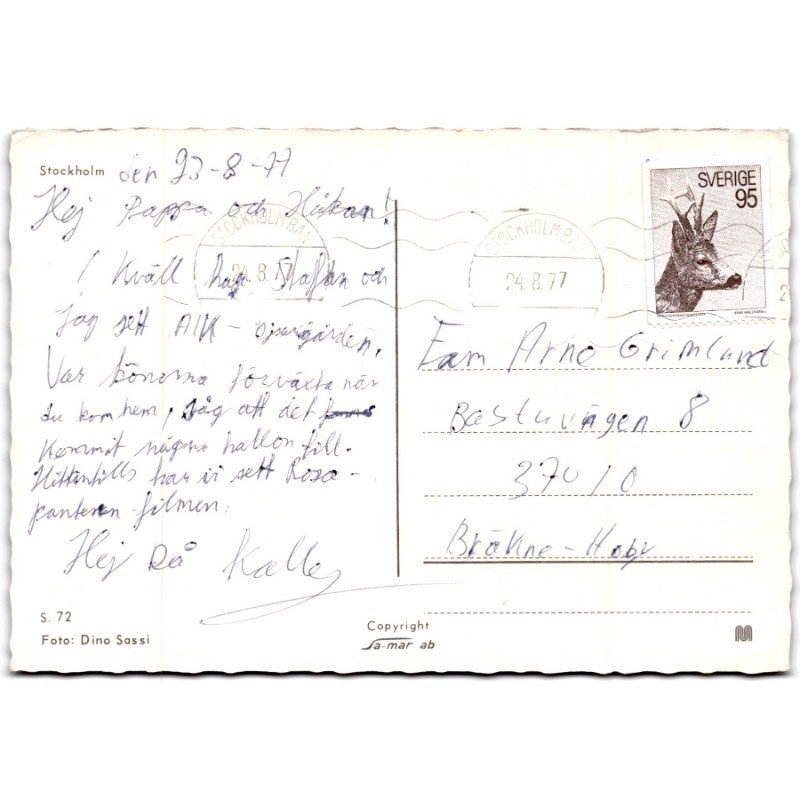 Stockholm den 23-8-77
Hej Pappa och Håkan!
I kväll har Staffan och
jag sett AIK - Djurgården.
Var bönorna förväxta när
du kom hem, såg att det
kommit några hallon till.
Hittintills har vi sett Rosa-
pantern filmen.
Hej då Kalle
S. 72
Foto: Dino Sassi
Copyright
Sa-mar ab
STOCKHOLM BAN
24.8.77
STOCKHOLM BAN
24.8.77
SVERIGE
95
Fam Arne Grimlund
Bastuvägen 8
37010
Bräkne-Hoby